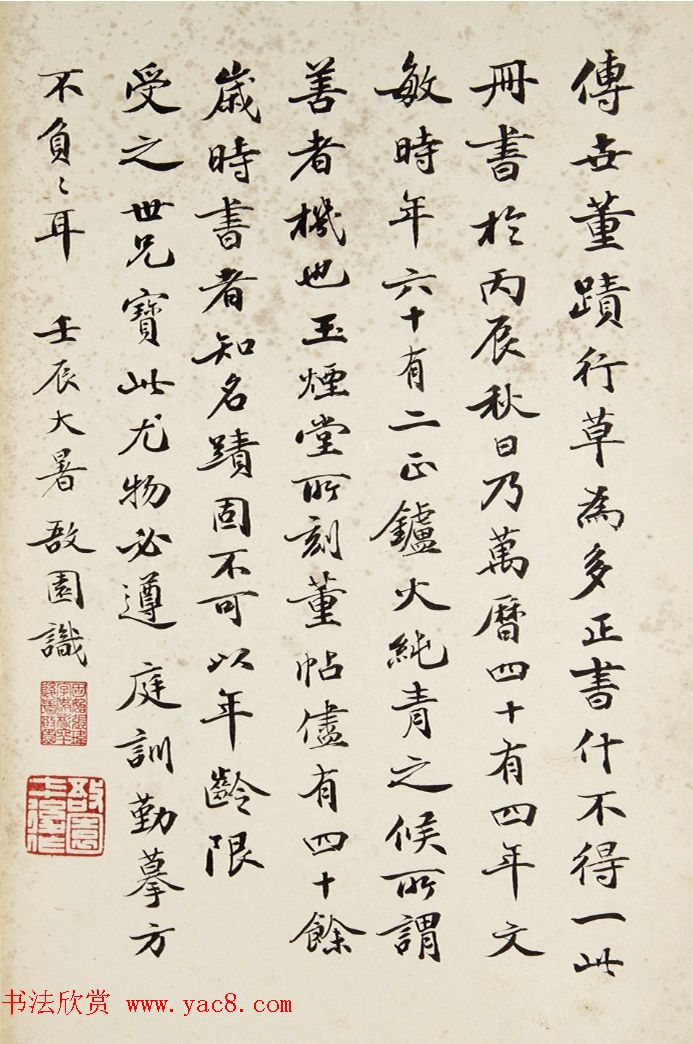 傳世董蹟行草為多正書什不得一此
冊書於丙辰秋日乃萬曆四十有四年文
敏時年六十有二正鑪火純青之候所謂
善者機也玉煙堂所刻董帖儘有四十餘
歲時書者知名蹟固不可以年齡限
受之世兄寶此尤物必遵庭訓勤摹方
不負〻耳 壬辰大暑敔園識
书法欣赏 www.yac8.com